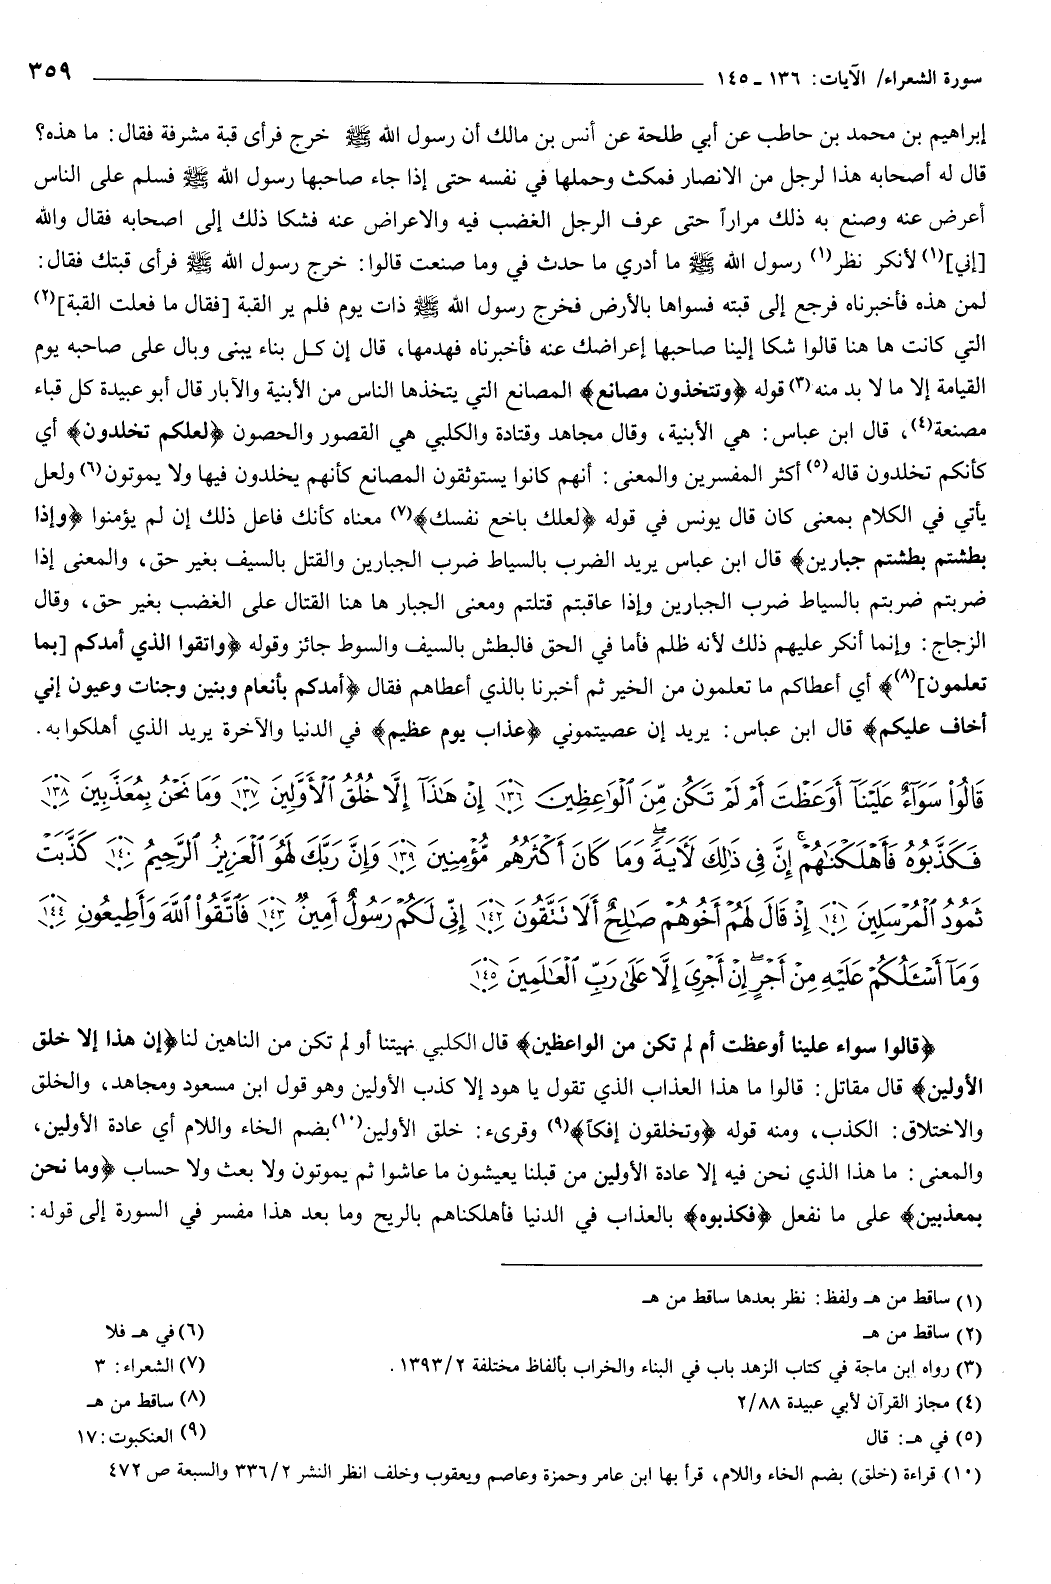 سورة الشعراء/ الآيات: ١٣٦ ـ ١٤٥ ٣٥٩
إبراهيم بن محمد بن حاطب عن أبي طلحة عن أنس بن مالك أن رسول الله ﷺ خرج فرأى قبة مشرفة فقال: ما هذه؟
قال له أصحابه هذا لرجل من الانصار فمكث وحملها في نفسه حتى إذا جاء صاحبها رسول الله ﷺ فسلم على الناس
أعرض عنه وصنع به ذلك مراراً حتى عرف الرجل الغضب فيه والاعراض عنه فشكا ذلك إلى اصحابه فقال والله
[إني](١) لأنكر نظر(١) رسول الله ﷺ ما أدري ما حدث في وما صنعت قالوا: خرج رسول الله ﷺ فرأى قبتك فقال:
لمن هذه فأخبرناه فرجع إلى قبته فسواها بالأرض فخرج رسول الله ﷺ ذات يوم فلم ير القبة [فقال ما فعلت القبة](٢)
التي كانت ها هنا قالوا شكا إلينا صاحبها إعراضك عنه فأخبرناه فهدمها، قال إن كل بناء يبنى وبال على صاحبه يوم
القيامة إلا ما لا بد منه(٣) قوله ﴿وتتخذون مصانع﴾ المصانع التي يتخذها الناس من الأبنية والآبار قال أبو عبيدة كل قباء
مصنعة(٤)، قال ابن عباس: هي الأبنية، وقال مجاهد وقتادة والكلبي هي القصور والحصون ﴿لعلكم تخلدون﴾ أي
كأنكم تخلدون قاله(٥) أكثر المفسرين والمعنى: أنهم كانوا يستوثقون المصانع كأنهم يخلدون فيها ولا يموتون(٦) ولعل
يأتي في الكلام بمعنى كان قال يونس في قوله ﴿لعلك باخع نفسك﴾(٧) معناه كأنك فاعل ذلك إن لم يؤمنوا ﴿وإذا
بطشتم بطشتم جبارين﴾ قال ابن عباس يريد الضرب بالسياط ضرب الجبارين والقتل بالسيف بغير حق، والمعنى إذا
ضربتم ضربتم بالسياط ضرب الجبارين وإذا عاقبتم قتلتم ومعنى الجبار ها هنا القتال على الغضب بغير حق، وقال
الزجاج: وإنما أنكر عليهم ذلك لأنه ظلم فأما في الحق فالبطش بالسيف والسوط جائز وقوله ﴿واتقوا الذي أمدكم [بما
تعلمون](٨)﴾ أي أعطاكم ما تعلمون من الخير ثم أخبرنا بالذي أعطاهم فقال ﴿أمدكم بأنعام وبنين وجنات وعيون إني
أخاف عليكم﴾ قال ابن عباس: يريد إن عصيتموني ﴿عذاب يوم عظيم﴾ في الدنيا والآخرة يريد الذي أهلكوا به.
قَالُوا۟ سَوَآءٌ عَلَيْنَآ أَوَعَظْتَ أَمْ لَمْ تَكُن مِّنَ ٱلْوَٰعِظِينَ ﴿١٣٦﴾ إِنْ هَٰذَآ إِلَّا خُلُقُ ٱلْأَوَّلِينَ ﴿١٣٧﴾ وَمَا نَحْنُ بِمُعَذَّبِينَ ﴿١٣٨﴾
فَكَذَّبُوهُ فَأَهْلَكْنَٰهُمْ ۗ إِنَّ فِى ذَٰلِكَ لَءَايَةً ۖ وَمَا كَانَ أَكْثَرُهُم مُّؤْمِنِينَ ﴿١٣٩﴾ وَإِنَّ رَبَّكَ لَهُوَ ٱلْعَزِيزُ ٱلرَّحِيمُ ﴿١٤٠﴾ كَذَّبَتْ
ثَمُودُ ٱلْمُرْسَلِينَ ﴿١٤١﴾ إِذْ قَالَ لَهُمْ أَخُوهُمْ صَٰلِحٌ أَلَا تَتَّقُونَ ﴿١٤٢﴾ إِنِّى لَكُمْ رَسُولٌ أَمِينٌ ﴿١٤٣﴾ فَٱتَّقُوا۟ ٱللَّهَ وَأَطِيعُونِ ﴿١٤٤﴾
وَمَآ أَسْـَٔلُكُمْ عَلَيْهِ مِنْ أَجْرٍ ۖ إِنْ أَجْرِىَ إِلَّا عَلَىٰ رَبِّ ٱلْعَٰلَمِينَ ﴿١٤٥﴾
﴿قالوا سواء علينا أوعظت أم لم تكن من الواعظين﴾ قال الكلبي نهيتنا أو لم تكن من الناهين لنا ﴿إن هذا إلا خلق
الأولين﴾ قال مقاتل: قالوا ما هذا العذاب الذي تقول يا هود إلا كذب الأولين وهو قول ابن مسعود ومجاهد، والخلق
والاختلاق: الكذب، ومنه قوله ﴿وتخلقون إفكاً﴾(٩) وقرىء: خلق الأولين(١٠) بضم الخاء واللام أي عادة الأولين،
والمعنى: ما هذا الذي نحن فيه إلا عادة الأولين من قبلنا يعيشون ما عاشوا ثم يموتون ولا بعث ولا حساب ﴿وما نحن
بمعذبين﴾ على ما نفعل ﴿فكذبوه﴾ بالعذاب في الدنيا فأهلكناهم بالريح وما بعد هذا مفسر في السورة إلى قوله:
(١) ساقط من هـ ولفظ: نظر بعدها ساقط من هـ
(٢) ساقط من هـ (٦) في هـ فلا
(٣) رواه ابن ماجة في كتاب الزهد باب في البناء والخراب بألفاظ مختلفة ١٣٩٣/٢. (٧) الشعراء: ٣
(٤) مجاز القرآن لأبي عبيدة ٢/٨٨ (٨) ساقط من هـ
(٥) في هـ: قال (٩) العنكبوت: ١٧
(١٠) قراءة (خلق) بضم الخاء واللام، قرأ بها ابن عامر وحمزة وعاصم ويعقوب وخلف انظر النشر ٣٣٦/٢ والسبعة ص ٤٧٢